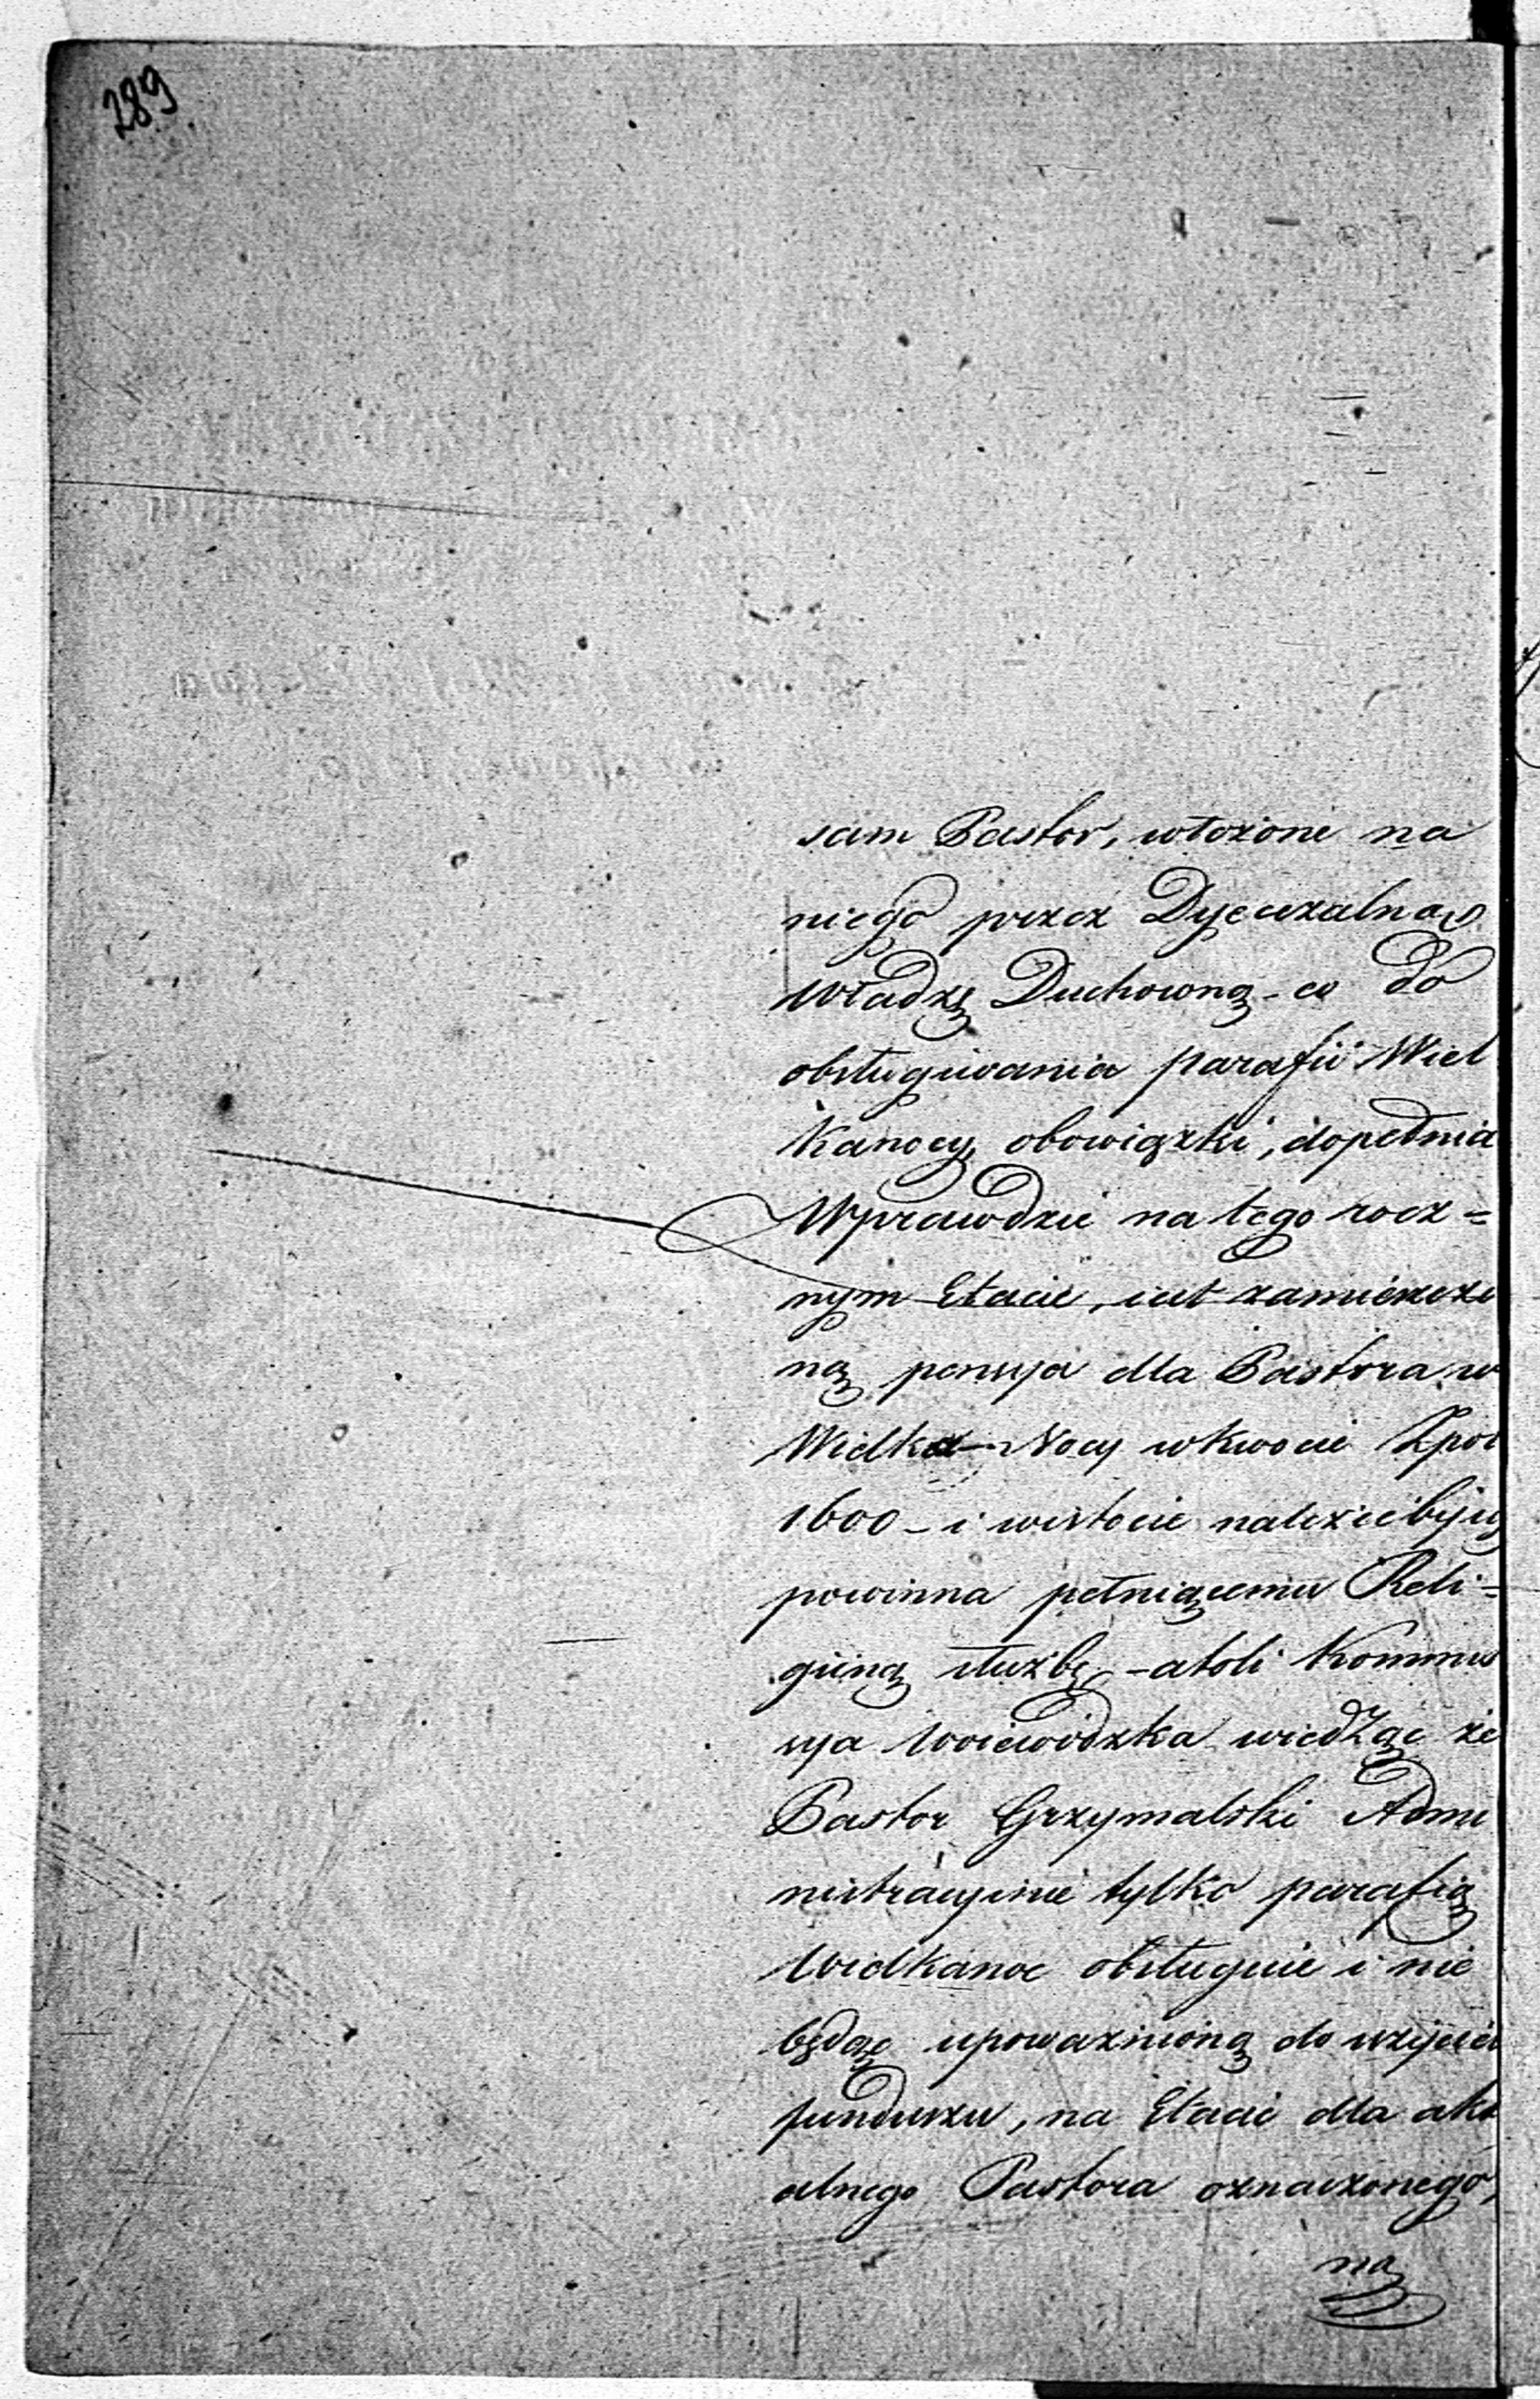 289
sam Pastor, włożone na
niego przez Dyecezalną
Władzę Duchowną - co do
obsługiwania parafii Wiel
kanocy, obowiązki, dopełnia
Wprawdzie na tego rocz=
nym Etacie, iest zamieszczo
ną pensya dla Pastora w
Wielka-Nocy w kwocie Zpol
1600 - i wistocie należećby ią
powinna pełniącemu Reli=
giiną służbę, - atoli Kommis
sya Woiewódzka wiedząc że
Pastor Grzymalski Admi
nistracyinie tylko parafią
Wielkanoc obsługuie i nie
będąc upoważnioną do użycia
funduszu, na Etacie dla aktu
alnego Pastora oznaczonego,
na